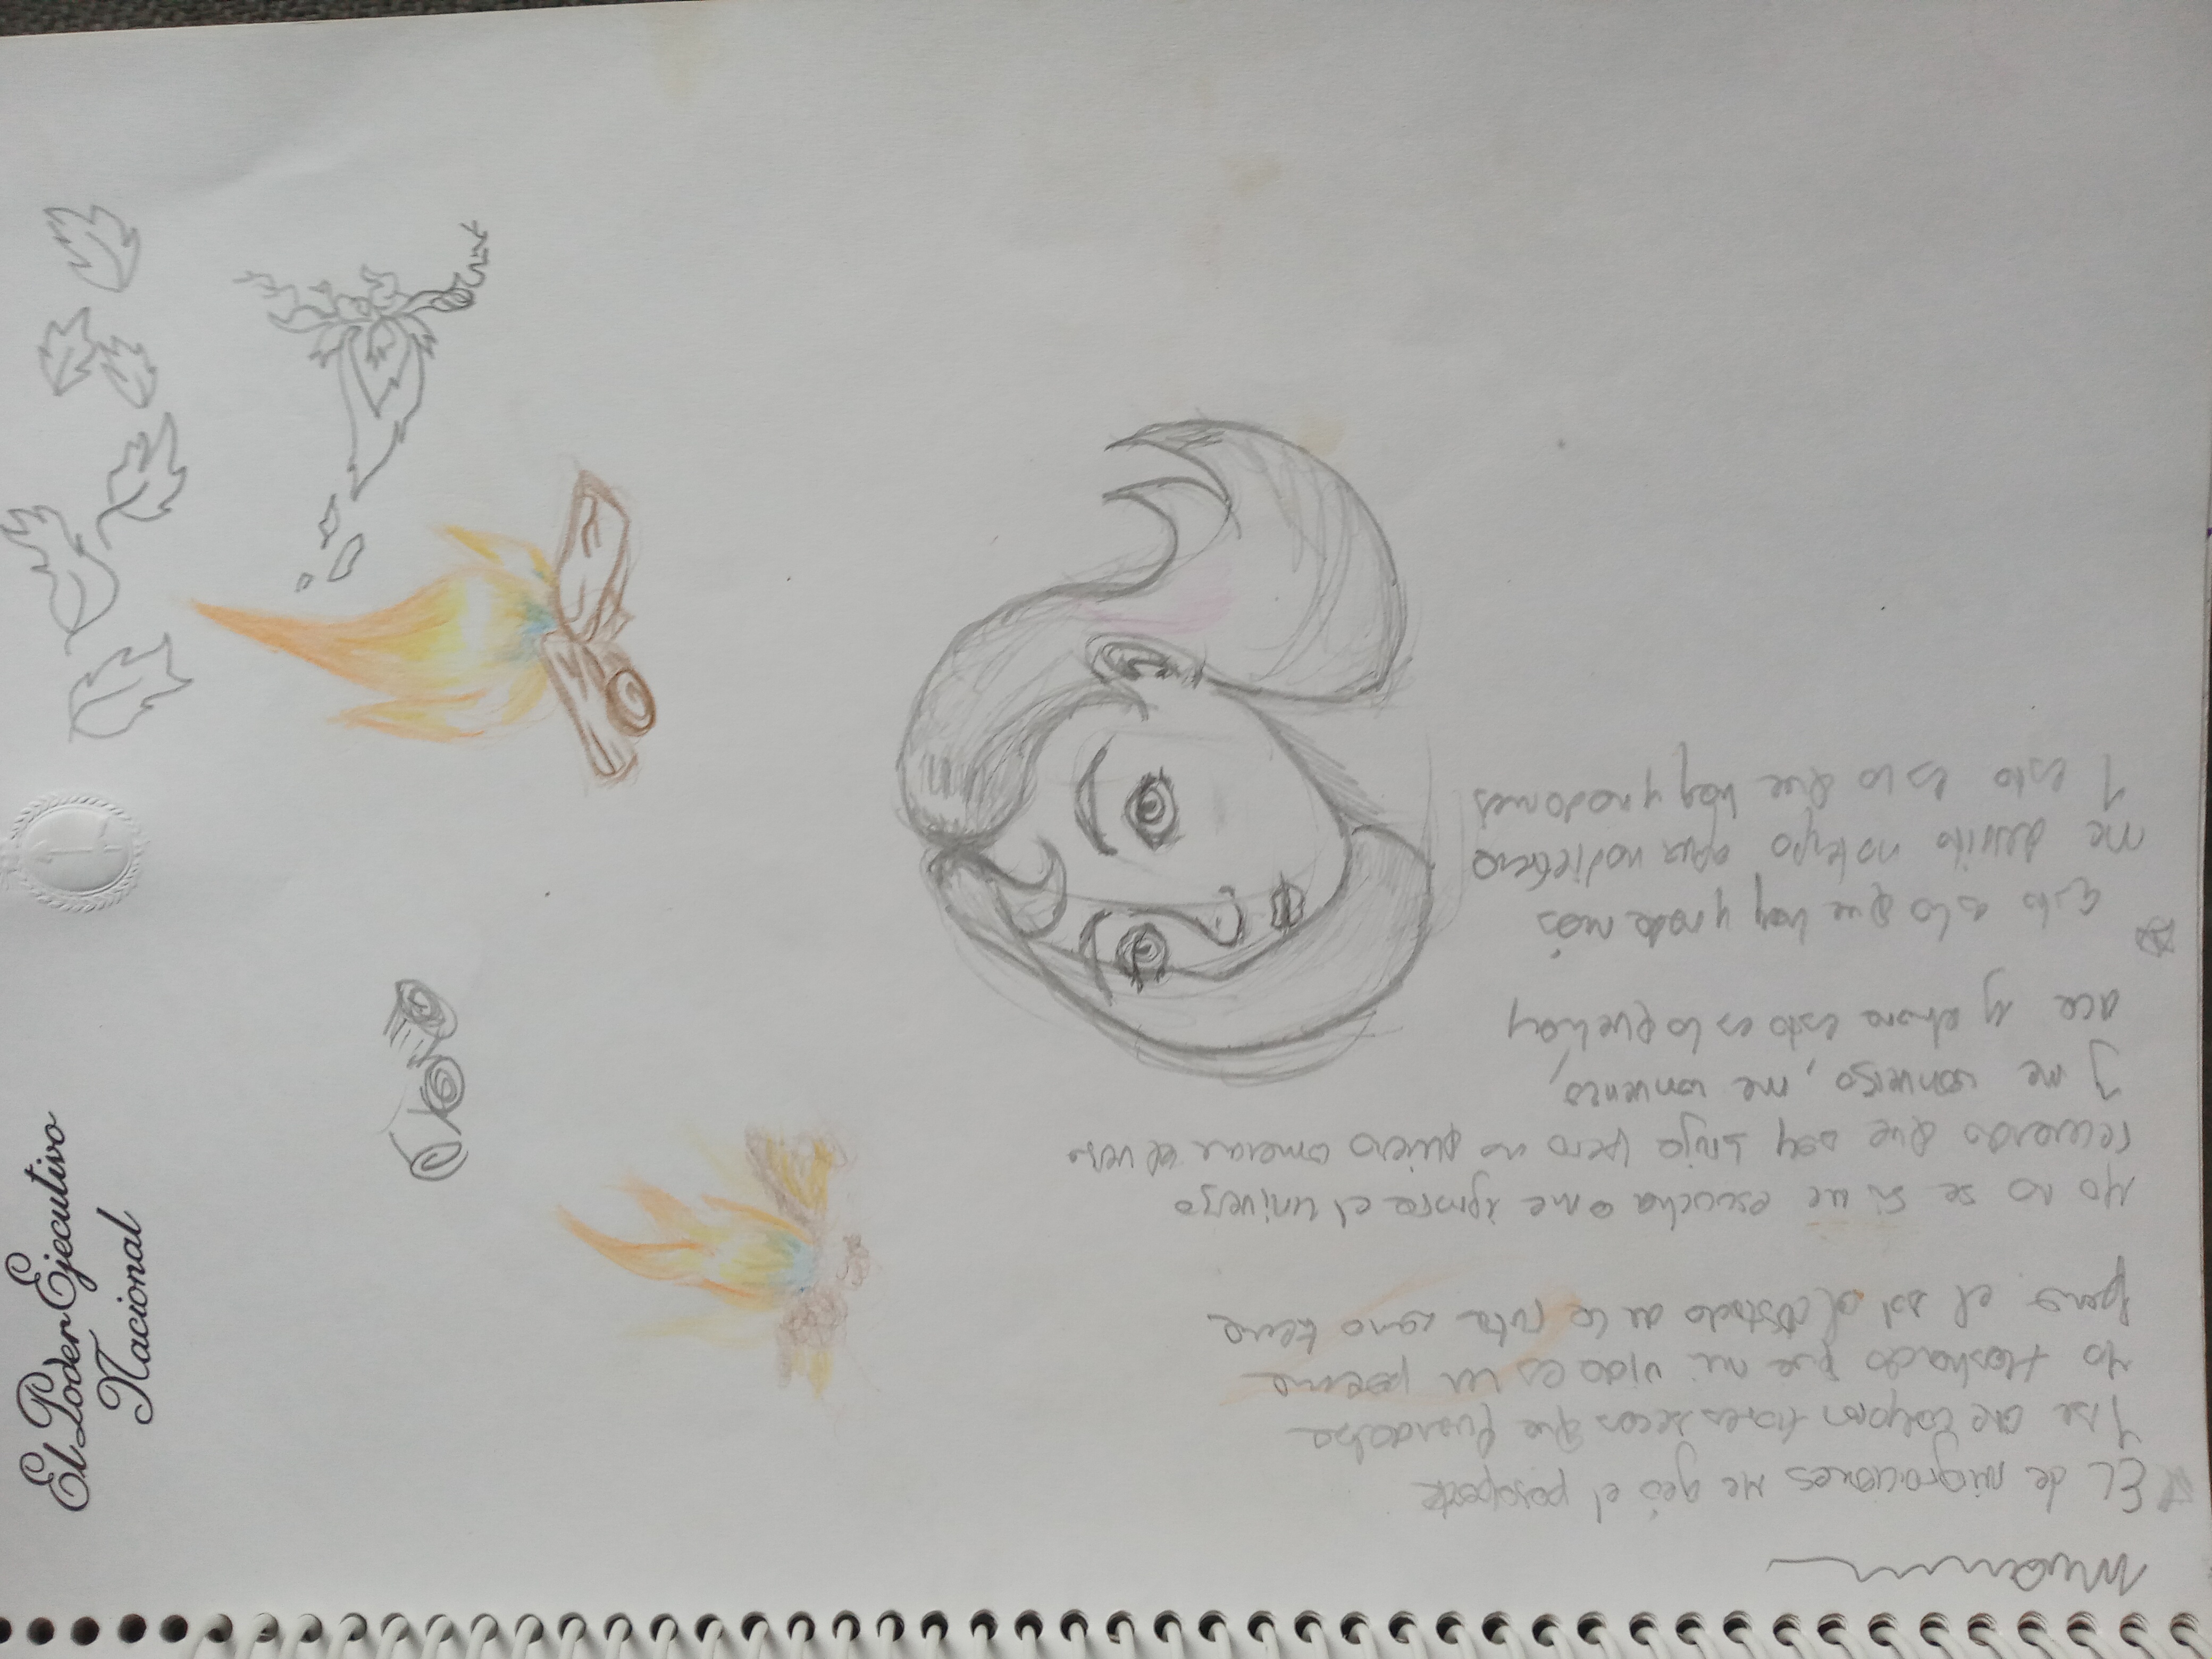 El Poder Ejecutivo
Nacional
EL de migraciones me dejó el pasaporte
Y se me cayeron flores secas que guardaba
Yo flashando que mi vida es un poema
pero el sol al costado de la ruta como
Yo no se si me escucha o me ignora el universo
recuerdo que soy bruja pero no quiero
Y me converso, me convenzo,
y ahora esto es lo que hay
Esto es lo que hay y nada más
me no tengo agua
Y esto es lo que hay y nada mas